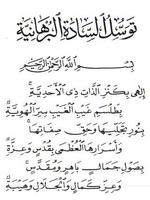 توسل السادة البرهانية
بسم الله الرحمن الرحيم
إِلٰهِي بِكَنْزِ الذَّاتِ ذِي الْأَحَدِيَّةِ
بِطَلْسَمِ غَيْبِ الْغَيْبِ سِرِّ الْهُوِيَّةِ
بِنُورِ تَجَلِّيهَا وَحَقِّ صِفَاتِهَا
وَأَسْرَارِهَا الْعُظْمَى بِقُدْسٍ وَعِزَّةِ
بِصَوْلِ جَمَالٍ بَاهِرٍ وَمُقَدَّسٍ
وَعِزِّ كَمَالٍ وَالْجَلَالِ وَهَيْبَةِ